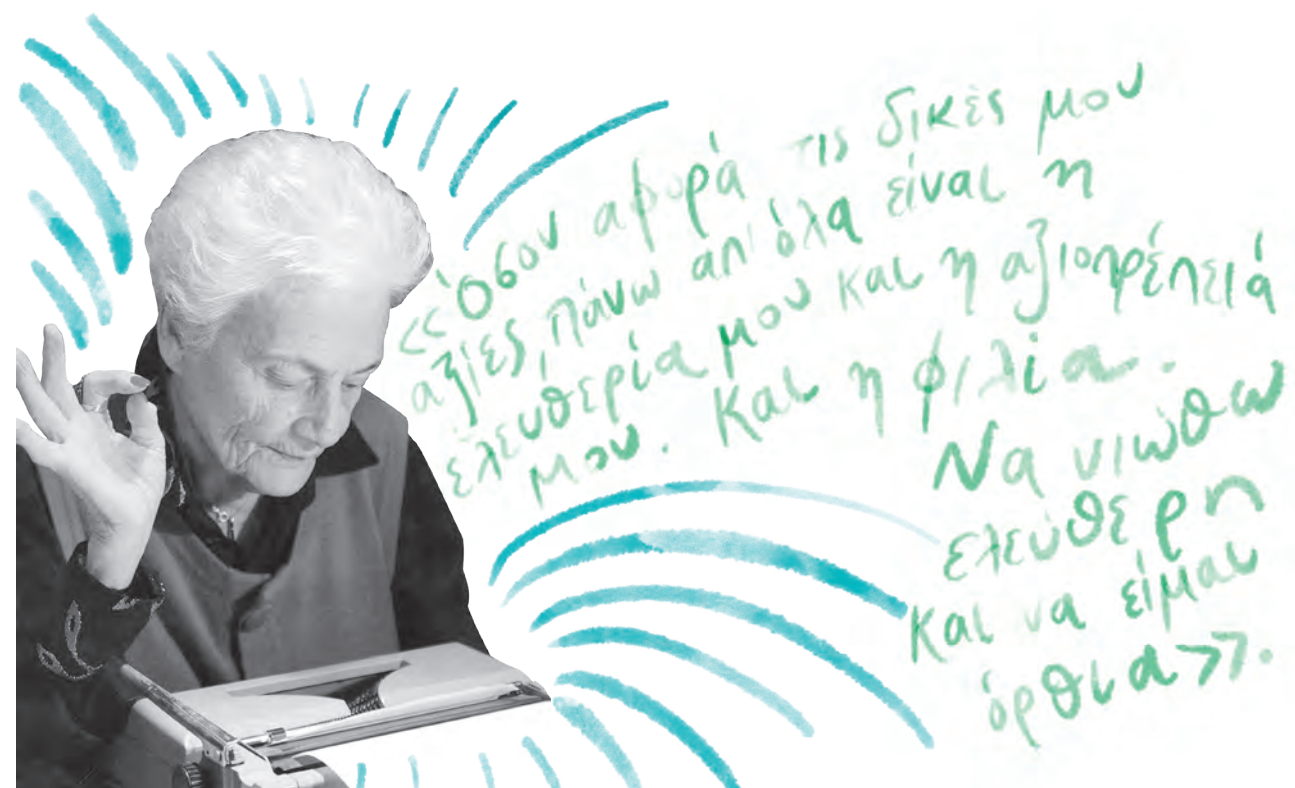 <<Όσον αφορά τις δικές μου
αξίες, πάνω απ' όλα είναι η
ελευθερία μου και η αξιοπρέπειά
μου. Και η φιλία.
Να νιώθω
ελεύθερη
και να είμαι
όρθια>>.